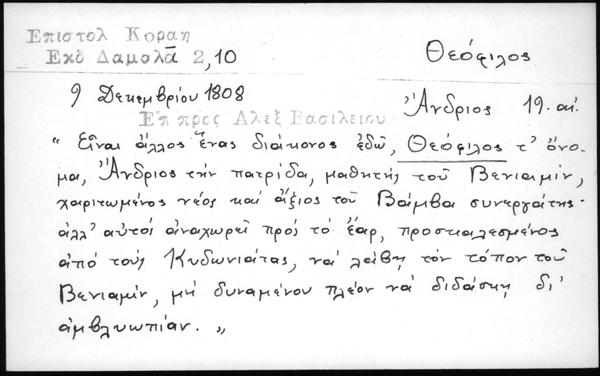 Επιστολ Κοραη
Εκδ Δαμαλᾶ 2,10
Θεόφιλος
9 Δεκεμβρίου 1808
Ἄνδριος 19. αἰ.
Επ προς Αλεξ Βασιλειου
"Εἶναι ἄλλος ἕνας διάκονος ἐδῶ, Θεόφιλος τ' ὄνο-
μα, Ἄνδριος τὴν πατρίδα, μαθητὴς τοῦ Βενιαμίν,
χαριτωμένος νέος καὶ ἄξιος τοῦ Βάμβα συνεργάτης·
ἀλλ' αὐτοί ἀναχωρεῖ πρός τό ἔαρ, προσκαλεσμένος
ἀπό τούς Κυδωνιάτας, νά λάβῃ τόν τόπον τοῦ
Βενιαμίν, μή δυναμένου πλέον νά διδάσκῃ δι'
ἀμβλυωπίαν.„